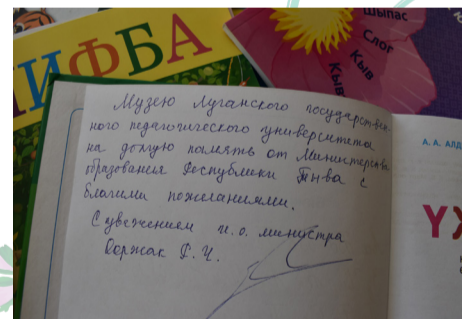 ИФБА
Шыпас
Слог
Кыв
Кыв
Музею Луганского государствен-
ного педагогического университета
на долгую память от Министерства
образования Республики Тыва с
благими пожеланиями.
С уважением и.о. министра
Е.Ч.
А. А. АЛД